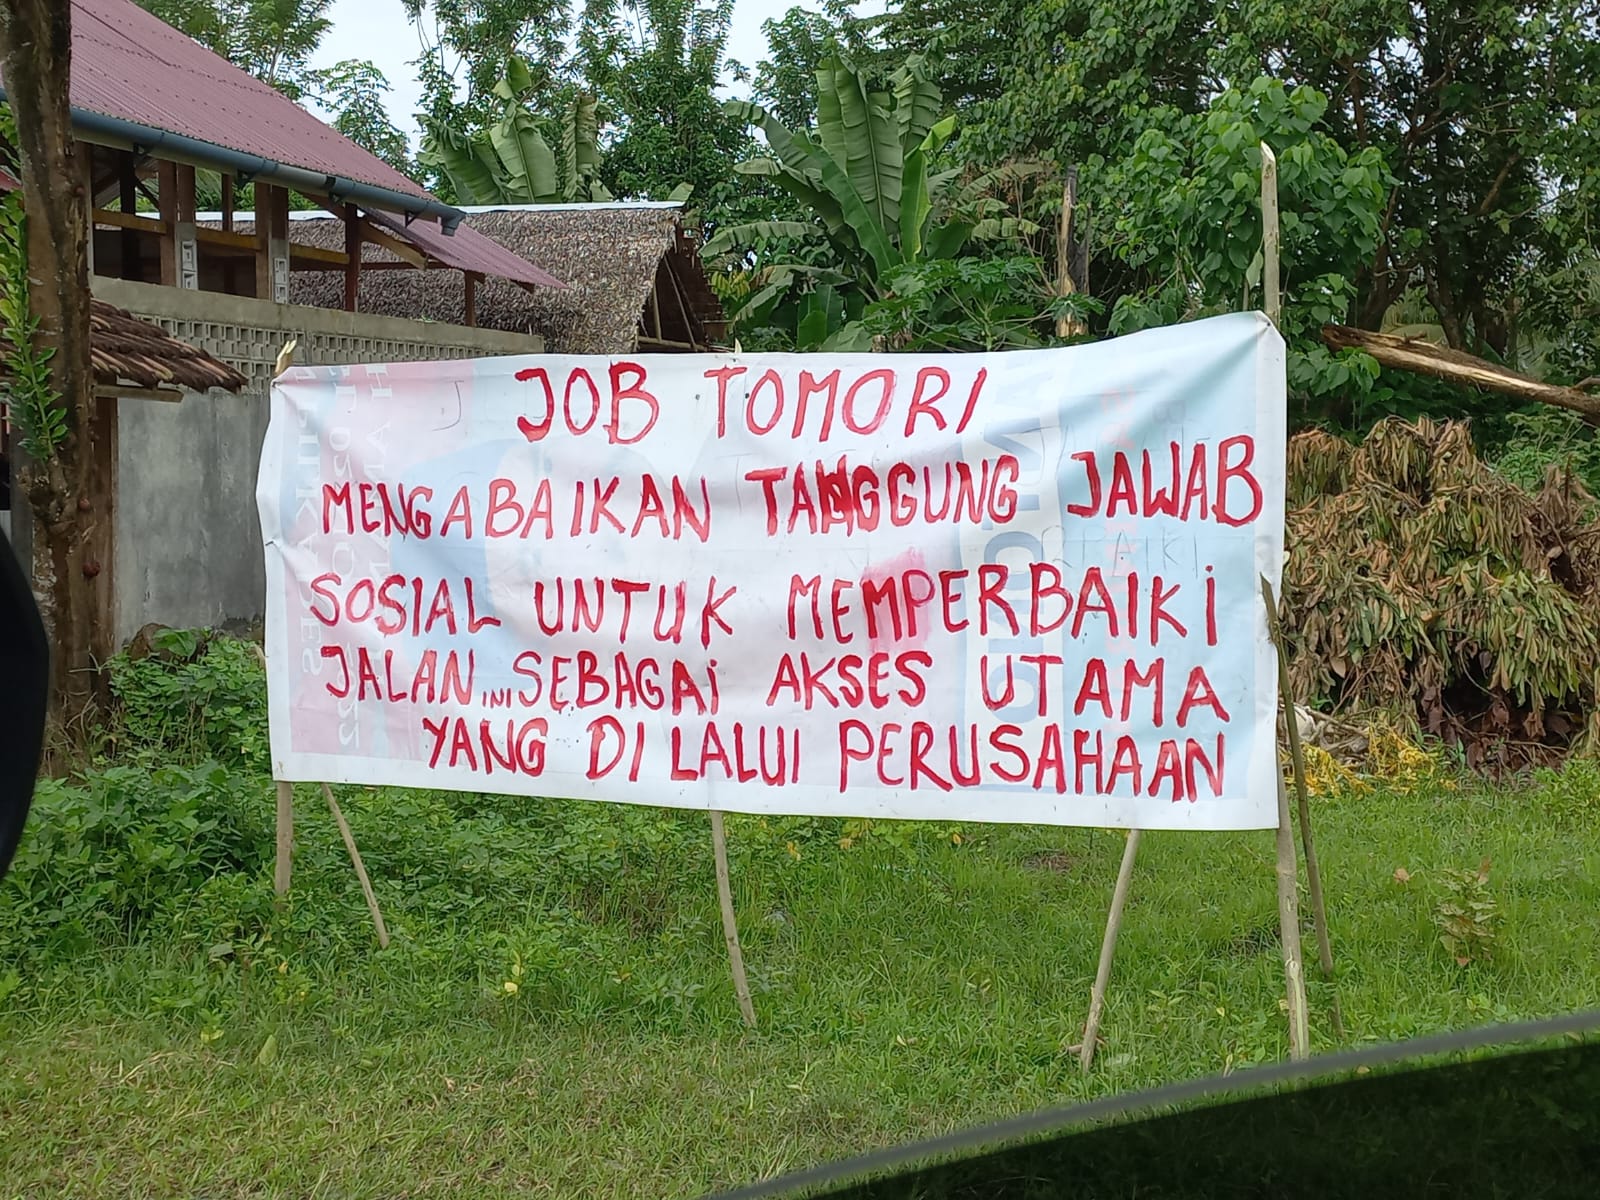 JOB TOMORI
MENGABAIKAN TANGGUNG JAWAB
SOSIAL UNTUK MEMPERBAIKI
JALAN INI SEBAGAI AKSES UTAMA
YANG DI LALUI PERUSAHAAN